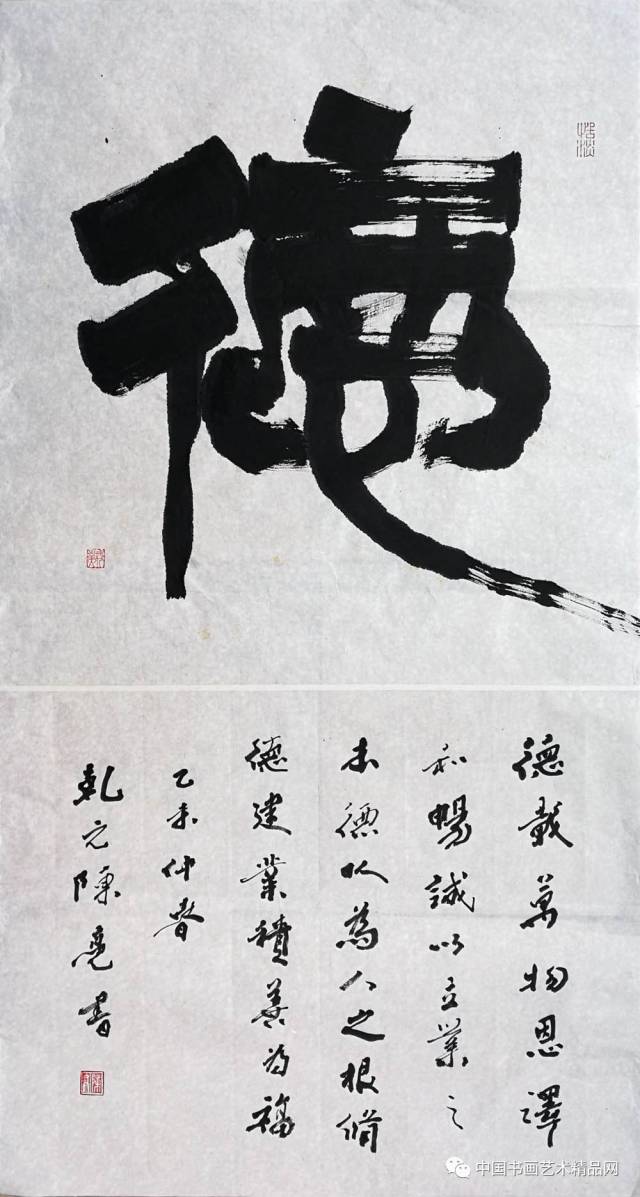 德
德載萬物恩譯
和暢誠以立業之
本德以為人之根脩
德建業積善為福
乙未仲春
乾元陳堯書
中国书画艺术精品网